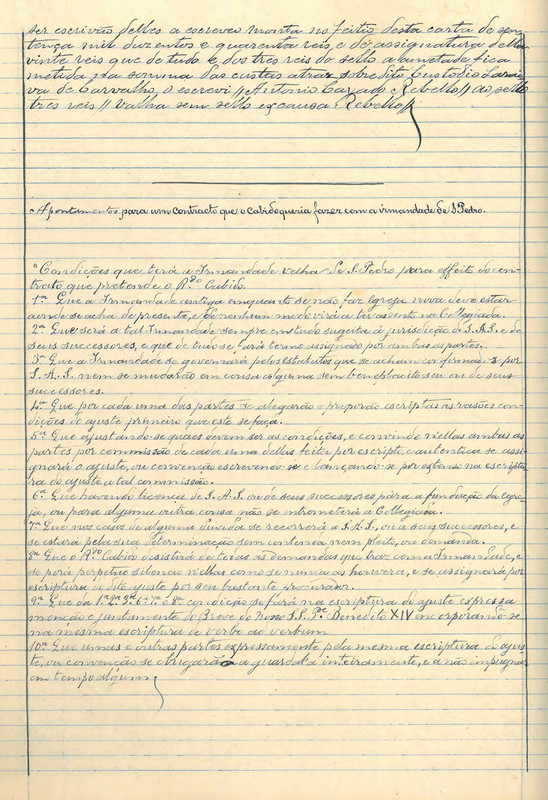 ser escrivão delles a escrevеo monta no feitio desta carta de sen-
tença mil duzentos e quarenta reis e de assignatura della
vinte reis que de tudo e dos tres reis do sello a ametade fica
metida na somma das custas atraz sobredito Custodio
va de Carvalho, o escrevi // Antonio Rebello // ao sello
tres reis // Valha sem sello ex causa Rebello //
Apontamentos para um contracto que o Cabido queria fazer com a irmandade de S. Pedro.
"Condições que terá a Irmandade velha de S. Pedro para effeito do con-
trato que pretende o R.do Cabido.
1.ª Que a Irmandade antiga emquanto se não faz Egreja nova deve estar
aonde se acha de presente, e de nenhum modo virá a ter assento na Collegiada.
2.ª Que será a tal Irmandade sempre em tudo sugeita á jurisdicção de S. A. S. e de
seus successores, e que de tudo se fará termo assignado por ambas as partes.
3.ª Que a Irmandade se governará pelos estatutos que se acham confirmados por
S. A. S. nem se mudarão em cousa alguma sem beneplacito seu ou de seus
successores.
4.ª Que por cada uma das partes se alegarão e proporão escriptas as rasões e con-
dições do ajuste primeiro que este se faça.
5.ª Que ajustando-se quaes devem ser as condições, e convindo n'ellas ambas as
partes por commissão de cada uma dellas feita por escripto, e autentica se assi-
gnará o ajuste, ou convenção escrevendo-se e lançando-se por extenso na escriptu-
ra do ajuste a tal commissão.
6.ª Que havendo licença de S. A. S. ou de seus successores para a fundação da egre-
ja, ou para alguma outra cousa não se intrometerá a Collegiada.
7.ª Que nos casos de alguma duvida se recorrerá a S. A. S., ou a seus successores, e
se estará pela sua determinação sem contenda nem pleito, ou demanda.
8.ª Que o R.do Cabido desistirá de todas as demandas que traz com a Irmandade, e
se porá perpetuo silencio n'ellas como se nunca as houvera, e se assignará por
escriptura do dito ajuste por seu bastante procurador.
9.ª Que da 1.ª 2.ª 3.ª 6.ª 7.ª e 8.ª condição se fará na escriptura do ajuste expressa
menção e juntamente do Breve do Nosso S. P.e Benedito XIV encorporando-se
na mesma escriptura de verbo ad verbum.
10.ª Que umas e outras partes expressamente pela mesma escriptura do ajus-
te, ou convenção se obrigarão a guardal-a inteiramente, e a não impugnar
em tempo algum